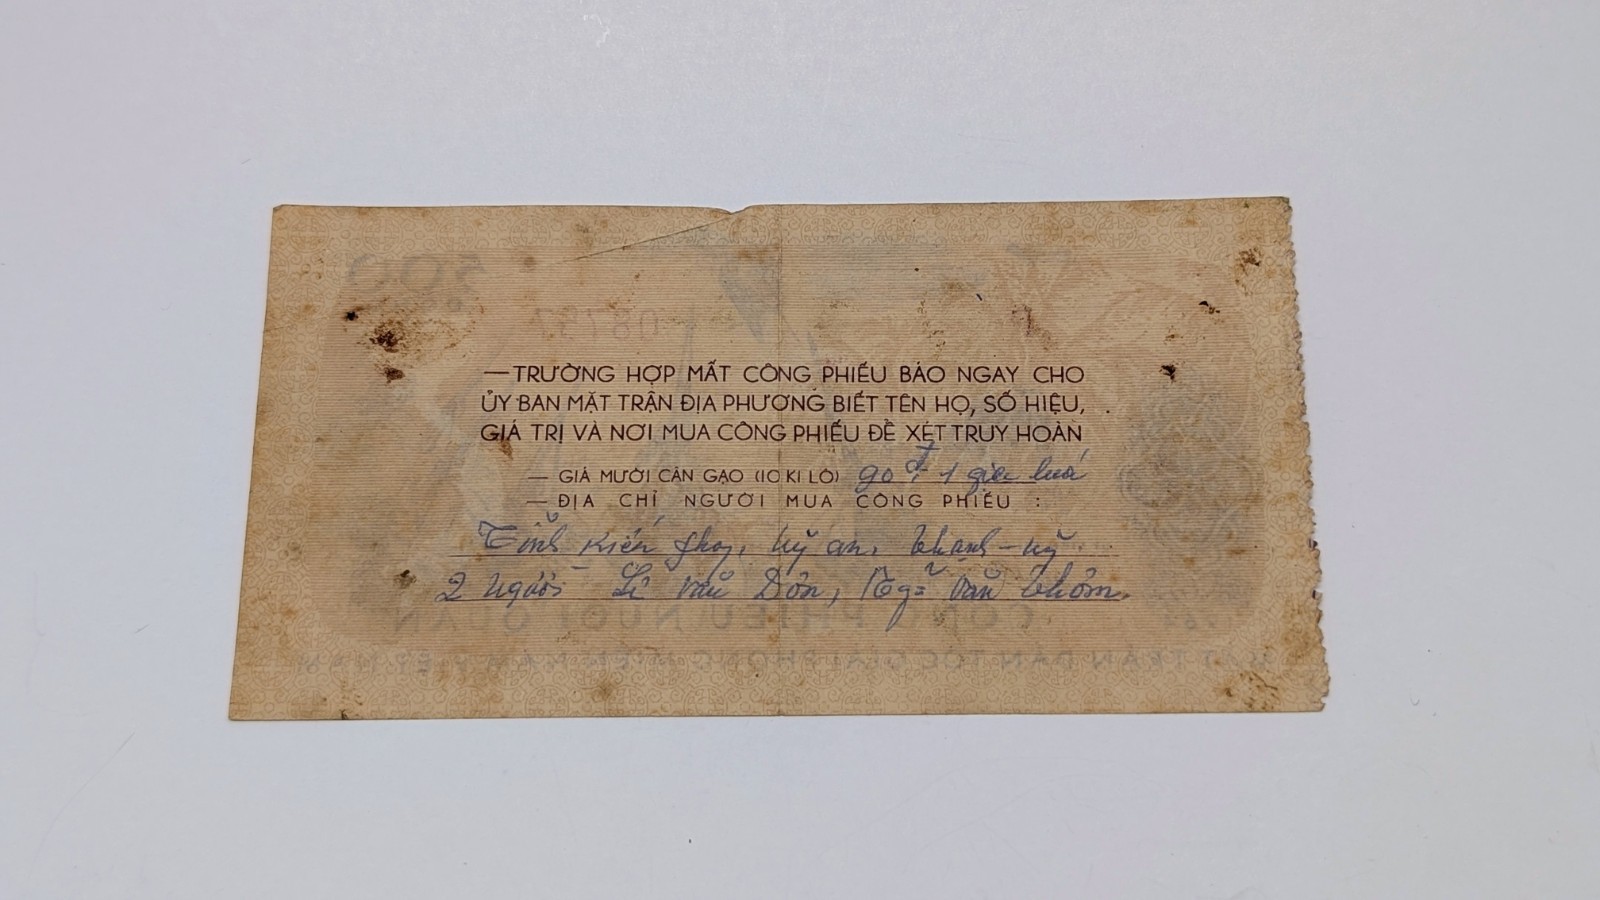 —TRƯỜNG HỢP MẤT CÔNG PHIẾU BÁO NGAY CHO
ỦY BAN MẶT TRẬN ĐỊA PHƯƠNG BIẾT TÊN HỌ, SỐ HIỆU,
GIÁ TRỊ VÀ NƠI MUA CÔNG PHIẾU ĐỀ XÉT TRUY HOÀN
— GIÁ MƯỜI CÂN GẠO (10 KI LÔ) 90đ 1 giạ lúa
— ĐỊA CHỈ NGƯỜI MUA CÔNG PHIẾU :
Tỉnh Kiến, Mỹ an,
2 người Lê văn Đôn, văn